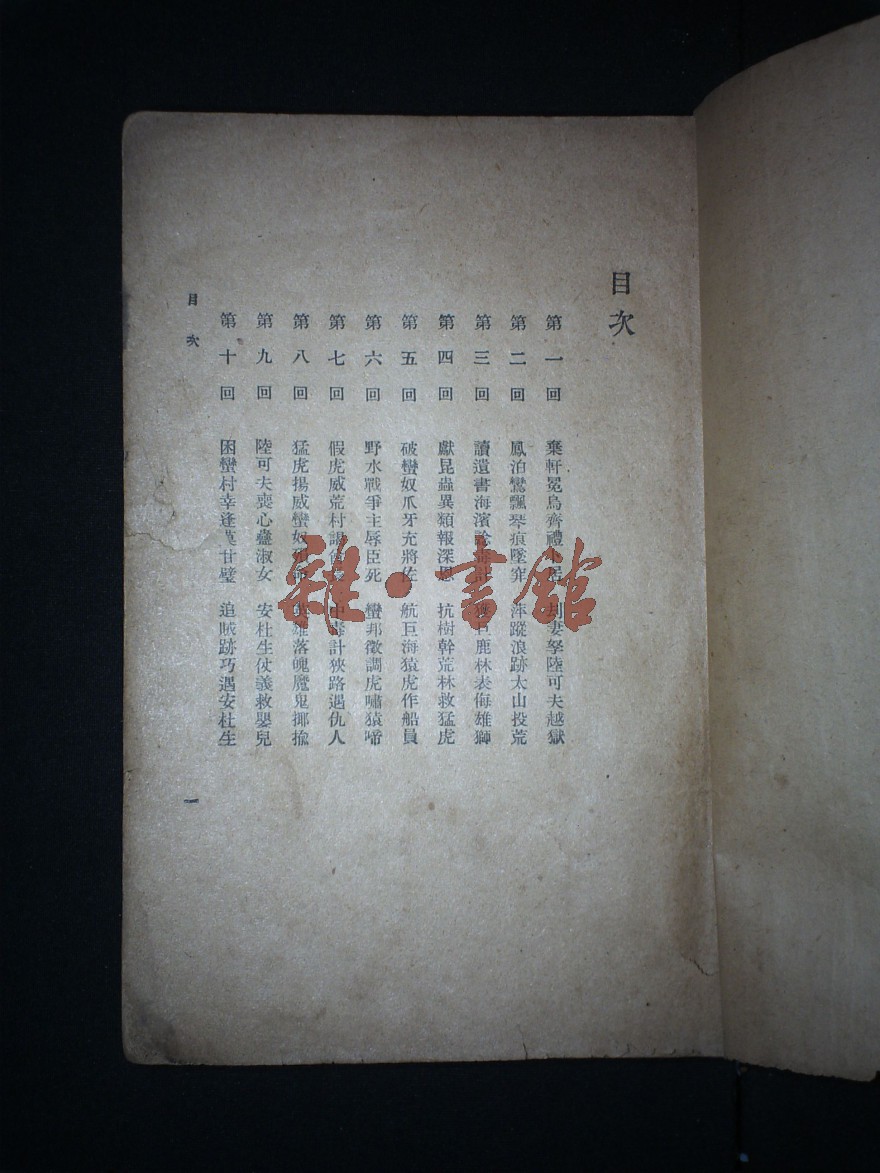 目次
第一回 棄軒冕鳥齊禮 妻孥陸可夫越獄
第二回 鳳泊鸞飄琴痕墜穽 萍蹤浪跡太山投荒
第三回 讀遺書海濱 巨鹿林表侮雄獅
第四回 獻昆蟲異類報深恩 抗樹幹荒林救猛虎
第五回 破蠻奴爪牙充將佐 航巨海猿虎作船員
第六回 野水戰爭主辱臣死 蠻邦徵調虎嘯猿啼
第七回 假虎威荒村 中毒計狹路遇仇人
第八回 猛虎揚威蠻奴 英雄落魄魔鬼揶揄
第九回 陸可夫喪心蠱淑女 安杜生仗義救嬰兒
第十回 困蠻村幸逢莫甘璧 追賊跡巧遇安杜生
目次
一
雜·書館